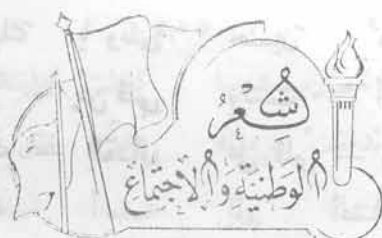 شِعْرُ
الوَطنيَّةِ وَالاجتماع